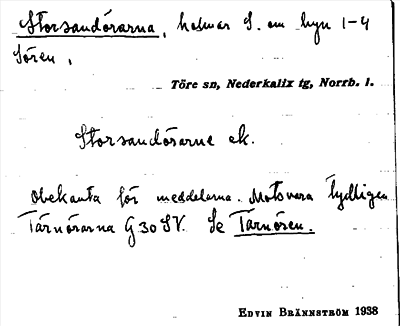 Storsandörarna, holmar S. om byn 1-4
Sören,
Töre sn, Nederkalix tg, Norrb. l.
Storsandörarne ek.
Obekanta för meddelarna. Motsvara tydligen
Tärnörarna G 30 SV. Se Tärnören.
EDVIN BRÄNNSTRÖM 1938